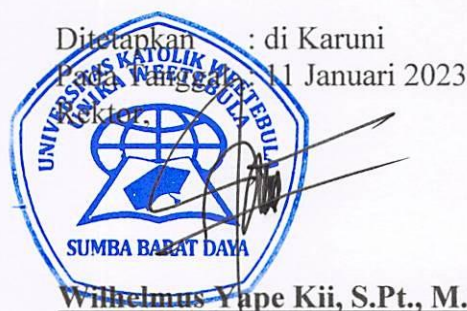 Ditetapkan : di Karuni
Pada Tanggal : 11 Januari 2023
Rektor,
UNIVERSITAS KATOLIK WEETEBULA
UNIKA WEETEBULA
SUMBA BARAT DAYA
Wilhelmus Yape Kii, S.Pt., M.